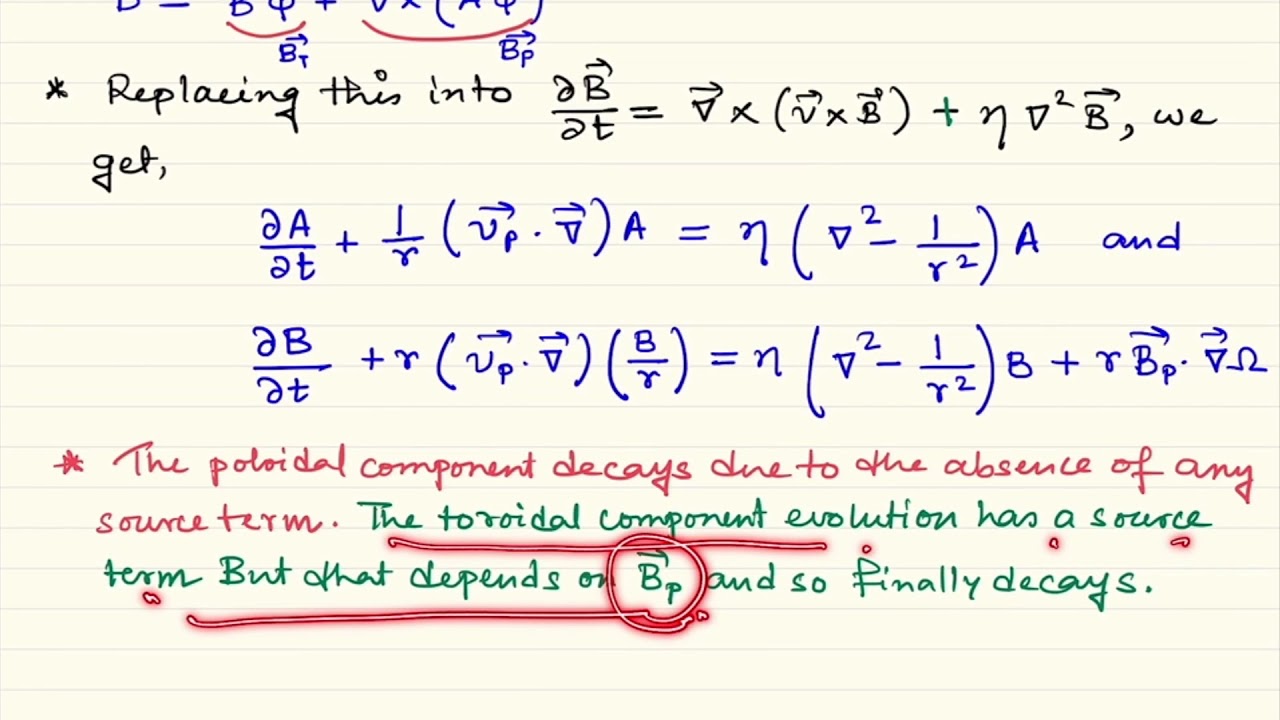 B⃗_T B⃗_P
* Replacing this into ∂B⃗/∂t = ∇⃗ × (v⃗ × B⃗) + η ∇² B⃗, we
get,
∂A/∂t + 1/r (v⃗_p · ∇⃗) A = η (∇² − 1/r²) A and
∂B/∂t + r (v⃗_p · ∇⃗) (B/r) = η (∇² − 1/r²) B + r B⃗_p · ∇⃗Ω
* The poloidal component decays due to the absence of any
source term. The toroidal component evolution has a source
term But that depends on B⃗_p and so finally decays.